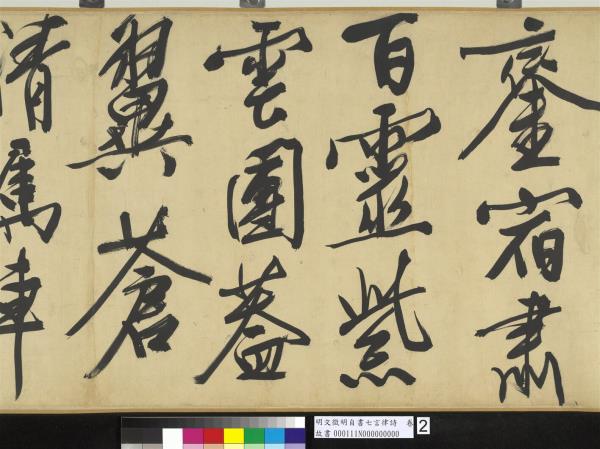 鑾宿肅
百靈紫
雲團蓋
翼蒼
清屬車
明文徵明自書七言律詩 卷
故書 000111N000000000
2